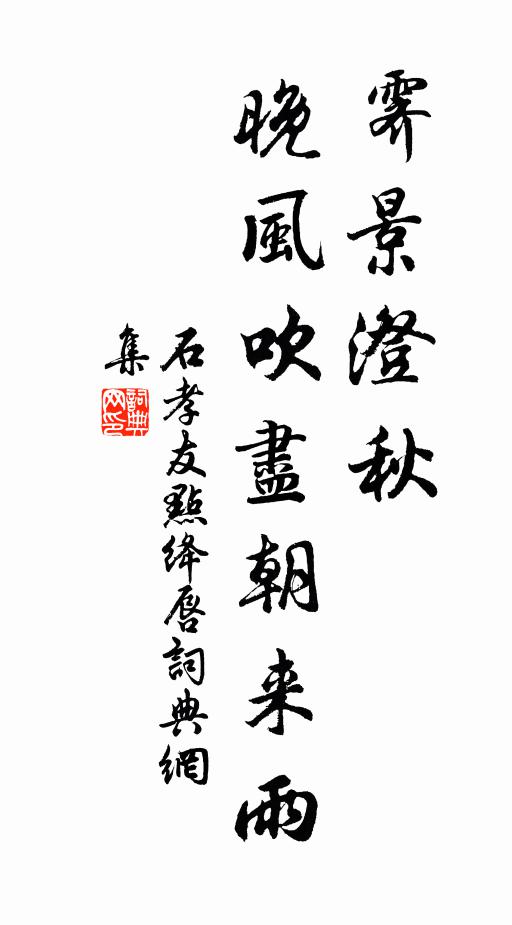 霽景澄秋
晚風吹盡朝来雨
石孝友點绛唇詞典網
集
詞典网印